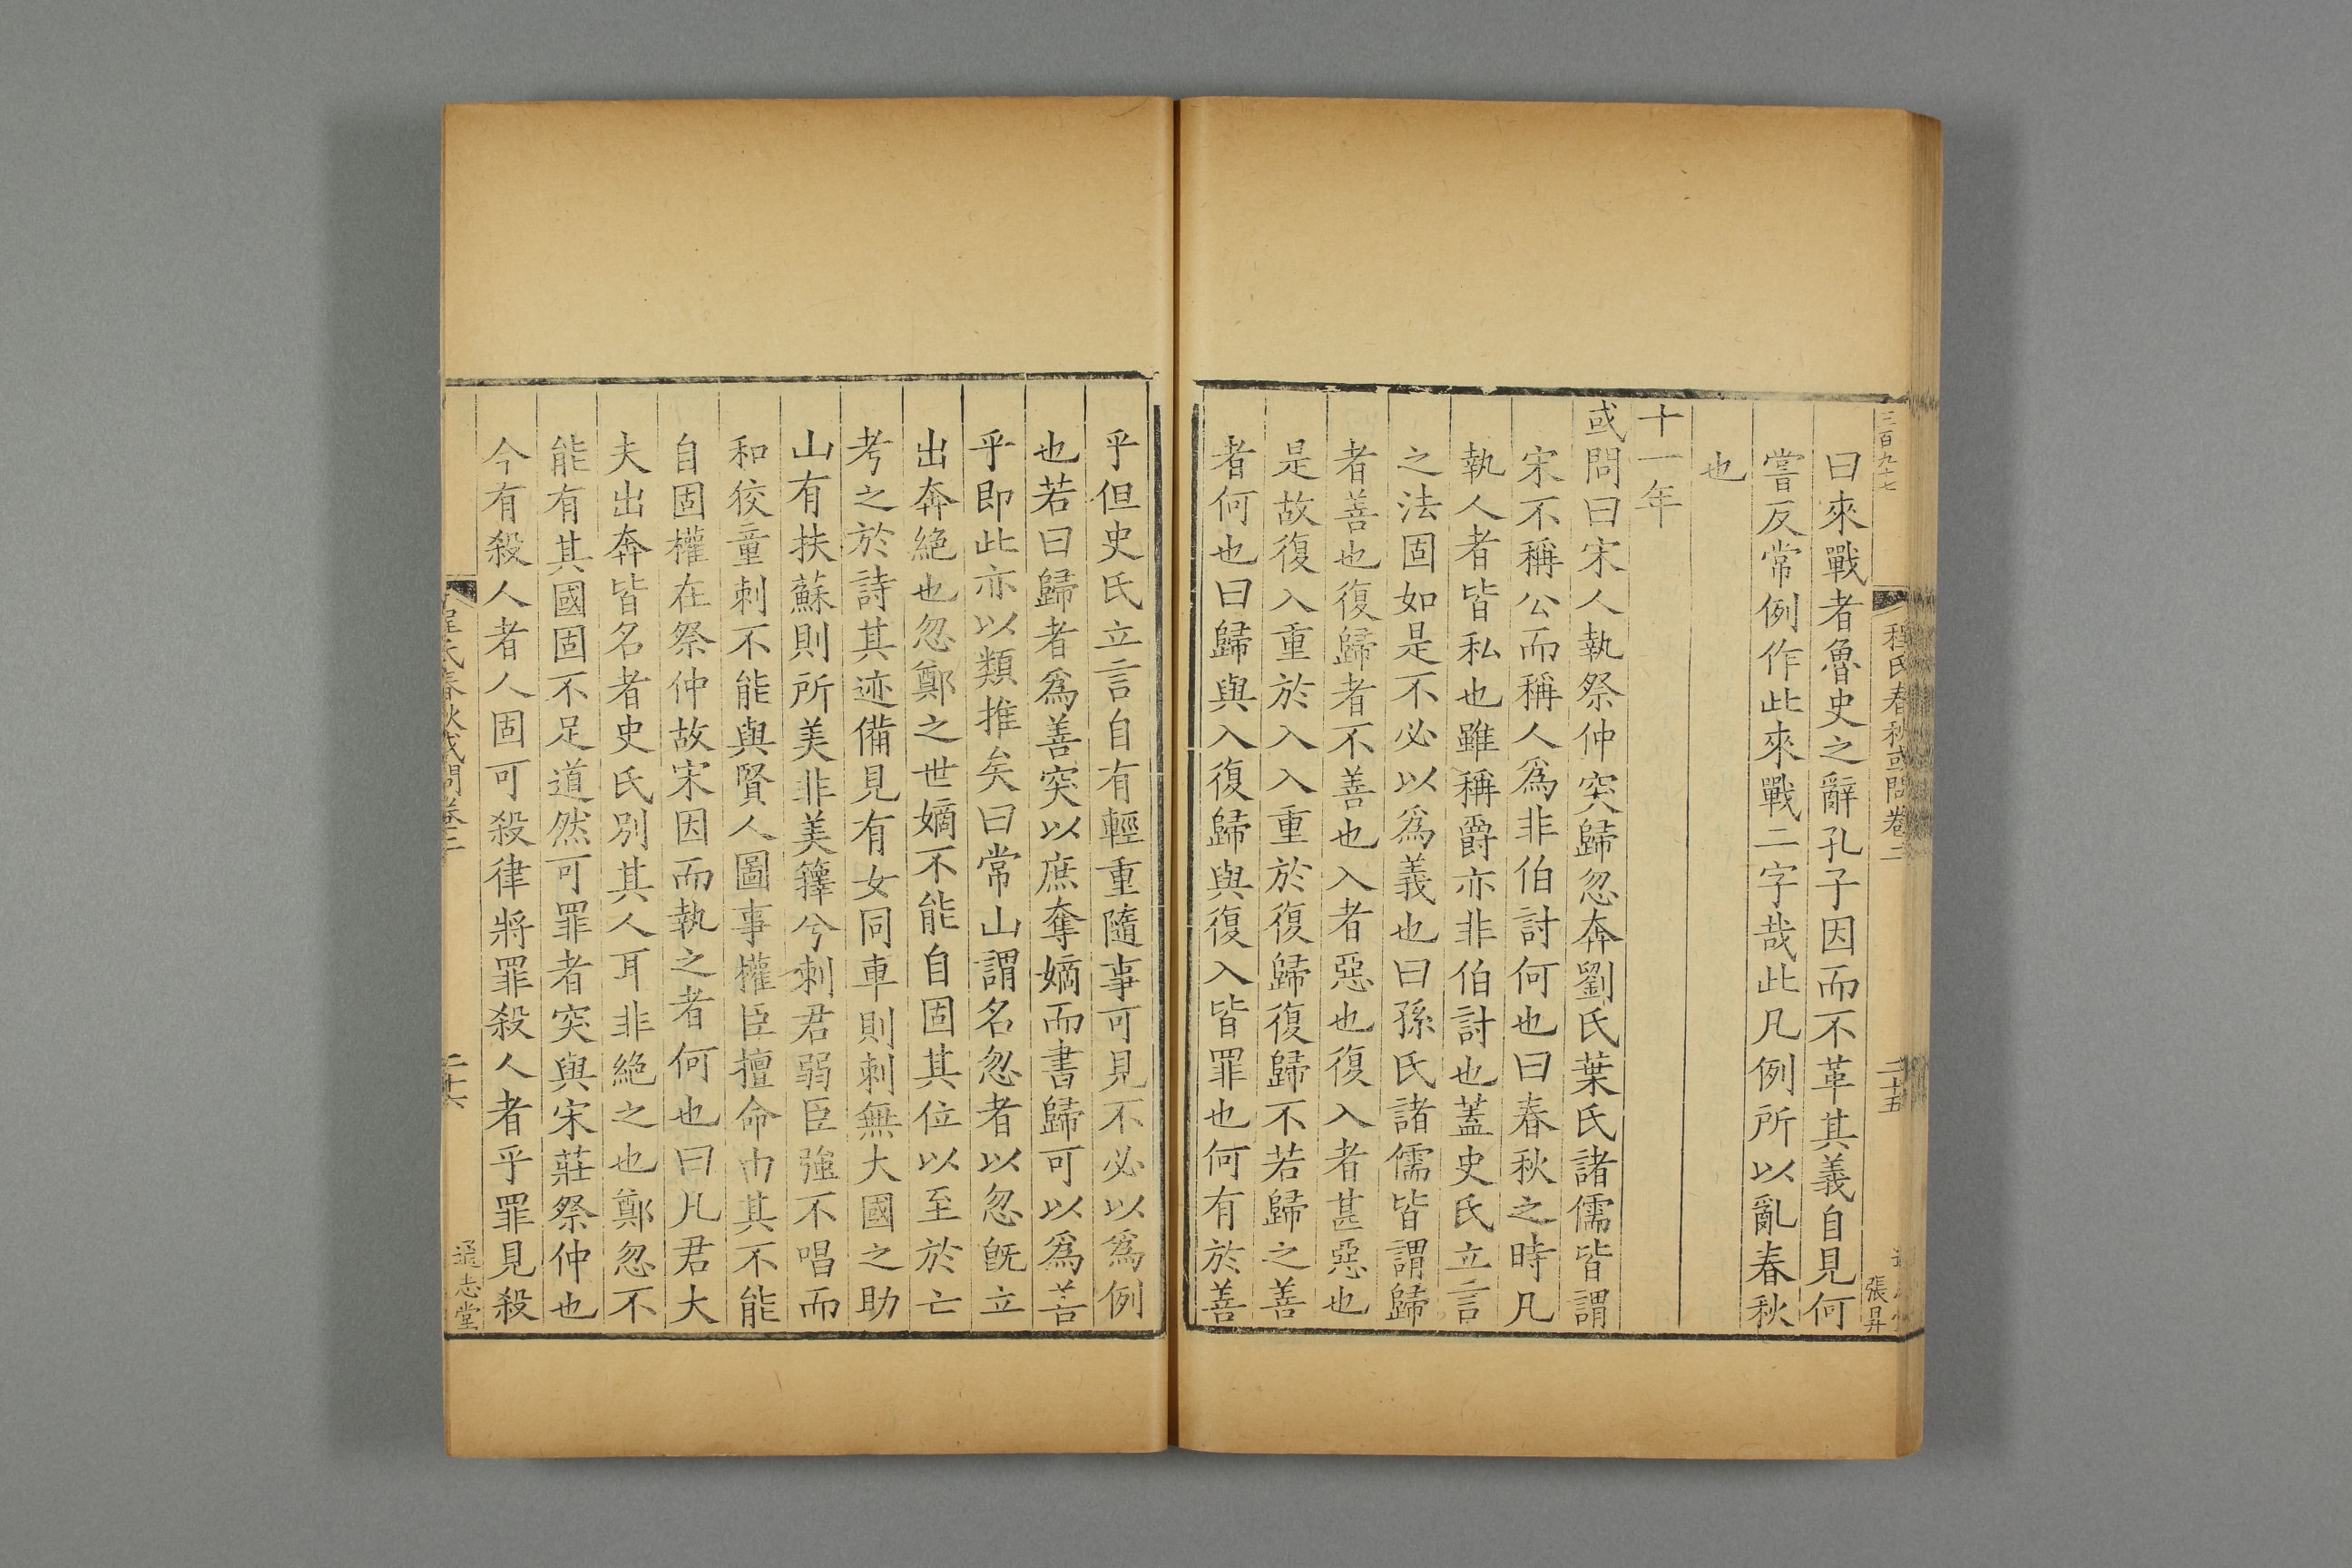 三百九十七
程氏春秋或問卷二
二十五
張昇
曰來戰者魯史之辭孔子因而不革其義自見何
嘗反常例作此來戰二字哉此凡例所以亂春秋
也
十一年
或問曰宋人執祭仲突歸忽奔劉氏葉氏諸儒皆謂
宋不稱公而稱人爲非伯討何也曰春秋之時凡
執人者皆私也雖稱爵亦非伯討也蓋史氏立言
之法固如是不必以爲義也曰孫氏諸儒皆謂歸
者善也復歸者不善也入者惡也復入者甚惡也
是故復入重於入入重於復歸復歸不若歸之善
者何也曰歸與入復歸與復入皆罪也何有於善
乎但史氏立言自有輕重隨事可見不必以爲例
也若曰歸者爲善突以庶奪嫡而書歸可以爲善
乎即此亦以類推矣曰常山謂名忽者以忽旣立
出奔絶也忽鄭之世嫡不能自固其位以至於亡
考之於詩其迹備見有女同車則刺無大國之助
山有扶蘇則所美非美籜兮刺君弱臣強不唱而
和狡童刺不能與賢人圖事權臣擅命巾其不能
自固權在祭仲故宋因而執之者何也曰凡君大
夫出奔皆名者史氏別其人耳非絶之也鄭忽不
能有其國固不足道然可罪者突與宋莊祭仲也
今有殺人者人固可殺律將罪殺人者乎罪見殺
程氏春秋或問卷二
二十六
通志堂